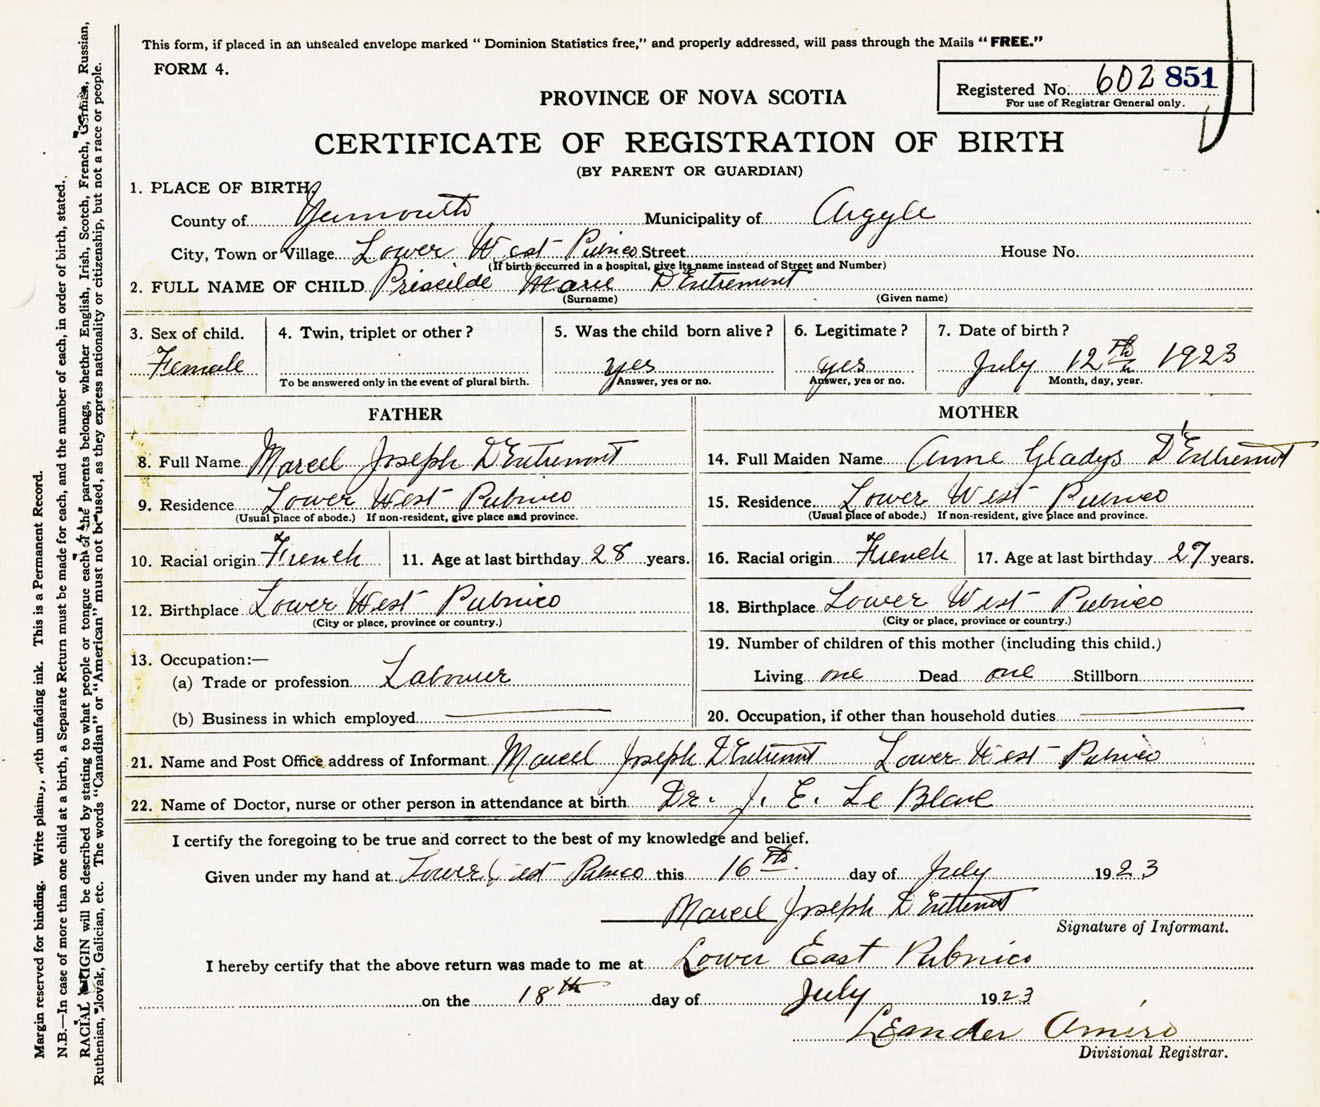 This form, if placed in an unsealed envelope marked "Dominion Statistics free," and properly addressed, will pass through the Mails "FREE."
FORM 4.
Registered No. 602 851
For use of Registrar General only.
PROVINCE OF NOVA SCOTIA
CERTIFICATE OF REGISTRATION OF BIRTH
(BY PARENT OR GUARDIAN)
1. PLACE OF BIRTH
County of Yarmouth Municipality of Argyle
City, Town or Village Lower West Pubnico Street House No.
(If birth occurred in a hospital, give its name instead of Street and Number)
2. FULL NAME OF CHILD Priscilde Marie D'Entremont
(Surname) (Given name)
3. Sex of child. 4. Twin, triplet or other? 5. Was the child born alive? 6. Legitimate? 7. Date of birth?
Female yes yes July 12th 1923
To be answered only in the event of plural birth. Answer, yes or no. Answer, yes or no. Month, day, year.
FATHER MOTHER
8. Full Name Marcel Joseph D'Entremont 14. Full Maiden Name Anne Gladys D'Entremont
9. Residence Lower West Pubnico 15. Residence Lower West Pubnico
(Usual place of abode.) If non-resident, give place and province. (Usual place of abode.) If non-resident, give place and province.
10. Racial origin French 11. Age at last birthday 28 years. 16. Racial origin French 17. Age at last birthday 27 years.
12. Birthplace Lower West Pubnico 18. Birthplace Lower West Pubnico
(City or place, province or country.) (City or place, province or country.)
13. Occupation:— 19. Number of children of this mother (including this child.)
(a) Trade or profession Labourer Living one Dead one Stillborn
(b) Business in which employed 20. Occupation, if other than household duties
21. Name and Post Office address of Informant Marcel Joseph D'Entremont Lower West Pubnico
22. Name of Doctor, nurse or other person in attendance at birth Dr. J. E. Le Blanc
I certify the foregoing to be true and correct to the best of my knowledge and belief.
Given under my hand at Lower West Pubnico this 16th day of July 1923
Marcel Joseph D'Entremont
Signature of Informant.
I hereby certify that the above return was made to me at Lower East Pubnico
on the 18th day of July 1923
Leander Amiro
Divisional Registrar.
Margin reserved for binding. Write plainly, with unfading ink. This is a Permanent Record.
N.B.—In case of more than one child at a birth, a Separate Return must be made for each, and the number of each, in order of birth, stated.
RACIAL ORIGIN will be described by stating to what people or tongue each of the parents belongs, whether English, Irish, Scotch, French, German, Russian,
Ruthenian, Slovak, Galician, etc. The words "Canadian" or "American" must not be used, as they express nationality or citizenship, but not a race or people.